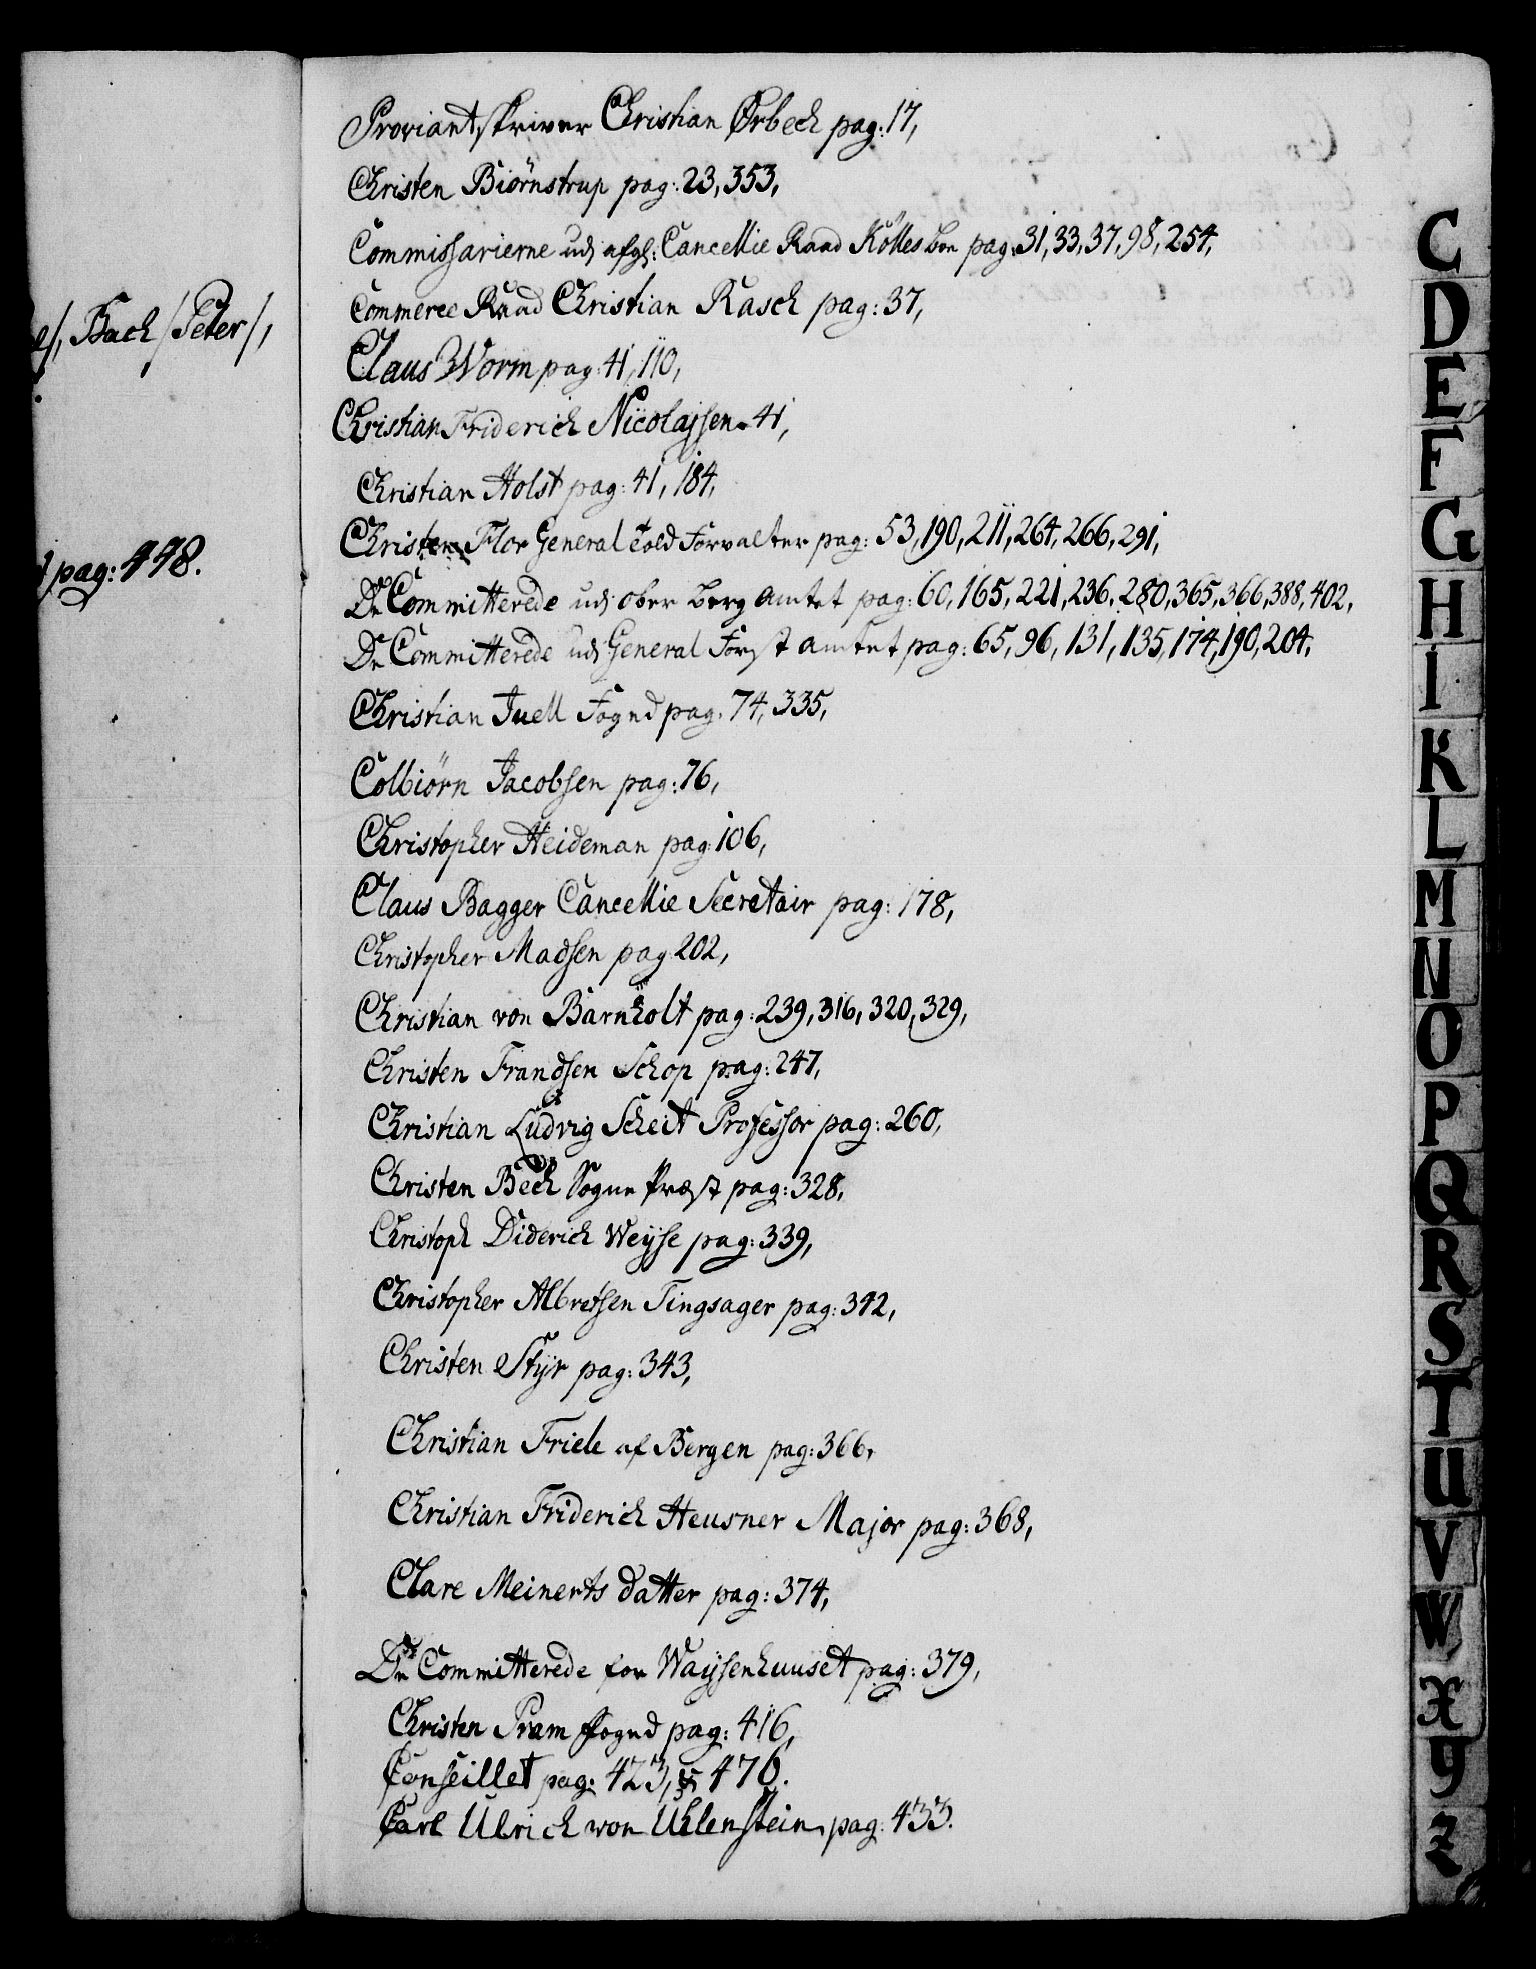 e/, Bach /Peter/,
pag: 448.
Proviantskriver Christian Ørbech pag: 17,
Christen Biörnstrup pag: 23, 353,
Commissarierne udi afgl: Cancellie Raad Kölles boe pag: 31, 33, 37, 98, 254,
Commerce Raad Christian Rasch pag: 37,
Claus Worm pag: 41, 110,
Christian Friderich Nicolajsen 41,
Christian Holst pag: 41, 184,
Christen Flor General Told Forvalter pag: 53, 190, 211, 264, 266, 291,
De Committerede udi ober berg amtet pag: 60, 165, 221, 236, 280, 365, 366, 388, 402,
De Committerede udi General Forst amtet pag: 65, 96, 131, 135, 174, 190, 204,
Christian Juell Fogned pag: 74, 335,
Colbiörn Jacobsen pag: 76,
Christopher Heideman pag: 106,
Claus Bagger Cancellie Secretair pag: 178,
Christopher Madsen pag 202,
Christian von Barnholt pag: 239, 316, 320, 329,
Christen Frandsen Schop pag: 247,
Christian Ludvig Scheit Professor pag: 260,
Christen Bech Sogne Præst pag: 328,
Christoph Diderich Weyse pag: 339,
Christopher Albretsen Tingsager pag: 342,
Christen Styr pag: 343,
Christian Friele af Bergen pag: 366,
Christian Friderich Heusner Major pag: 368,
Clare Meinerts datter pag: 374,
De Committerede for Waysenhuuset pag: 379,
Christen Pram Fogned pag: 416,
Conseillet pag: 423, 476.
Carl Ulrich von Uhlenstein pag: 433.
C
D
E
F
G
H
I
K
L
M
N
O
P
Q
R
S
T
U
V
W
X
Y
Z